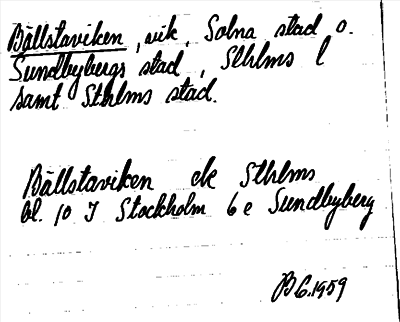 Bällstaviken, vik, Solna stad o.
Sundbybergs stad, Sthlms l
samt Sthlms stad.
Bällstaviken ek Sthlms
bl. 10 I Stockholm 6 e Sundbyberg
BG.1959